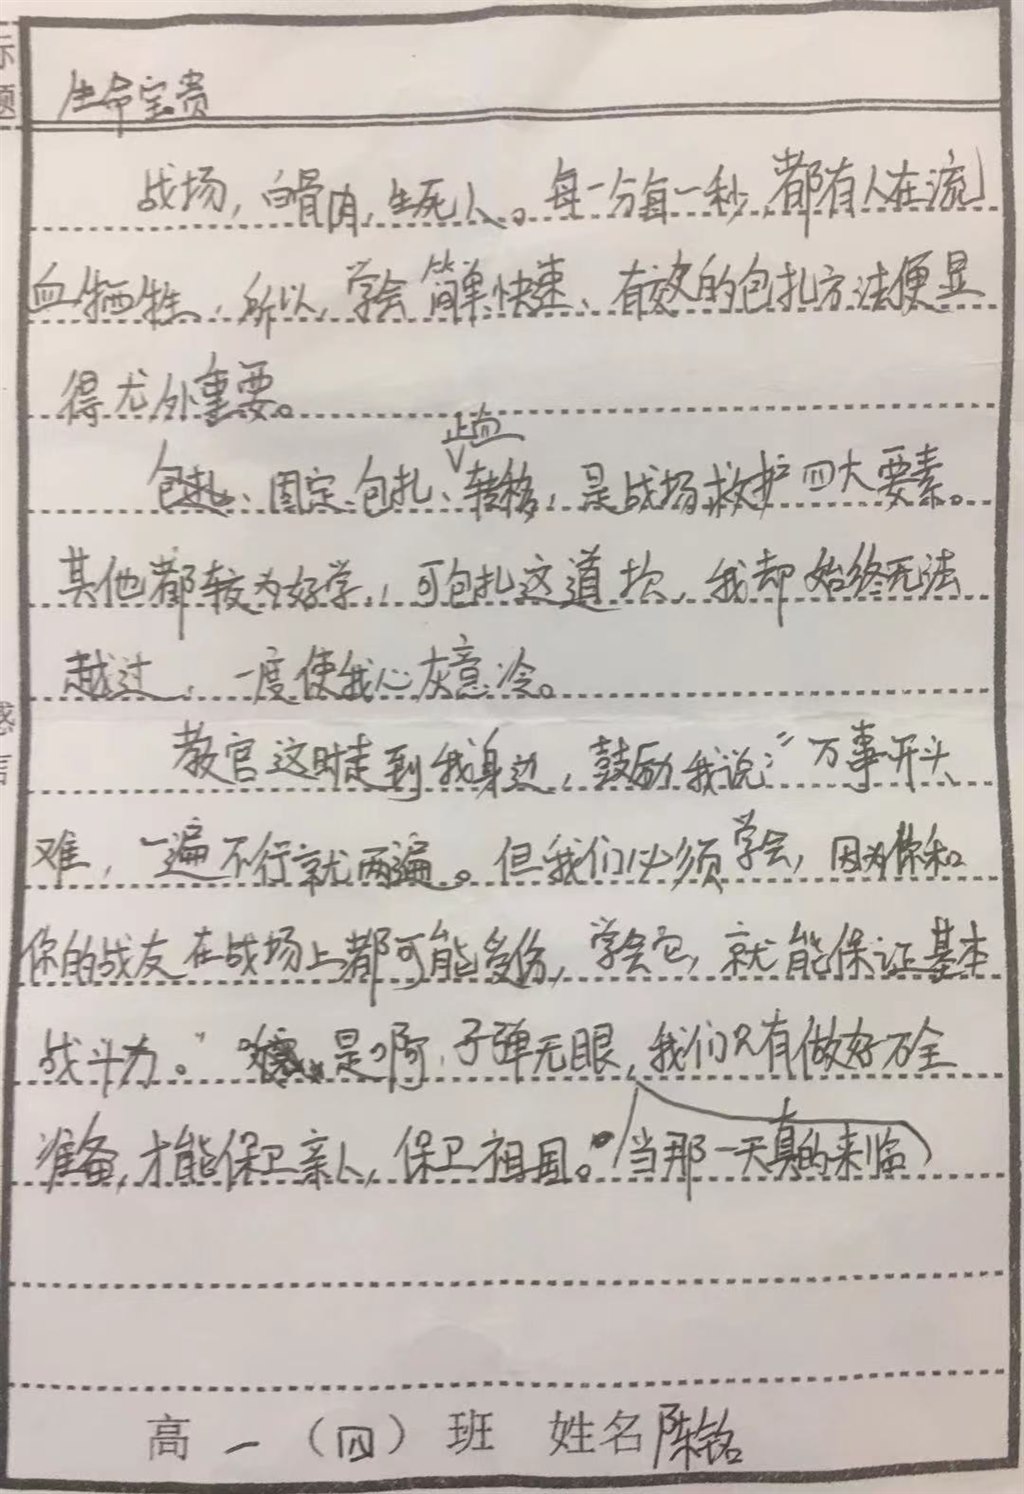 标题
生命宝贵
战场，白骨肉，生死人。每一分每一秒，都有人在流
血牺牲，所以，学会简单快速、有效的包扎方法便显
得尤外重要。
止血
包扎、固定、包扎、转移，是战场救护四大要素。
其他都较为好学，可包扎这道坎，我却始终无法
越过，一度使我心灰意冷。
感言
教官这时走到我身边，鼓励我说：“万事开头
难，一遍不行就两遍。但我们必须学会，因为你和
你的战友在战场上都可能受伤，学会它，就能保证基本
战斗力。”是啊，子弹无眼，我们只有做好万全
准备，才能保卫亲人，保卫祖国。当那一天真的来临
高一（四）班 姓名陈铭